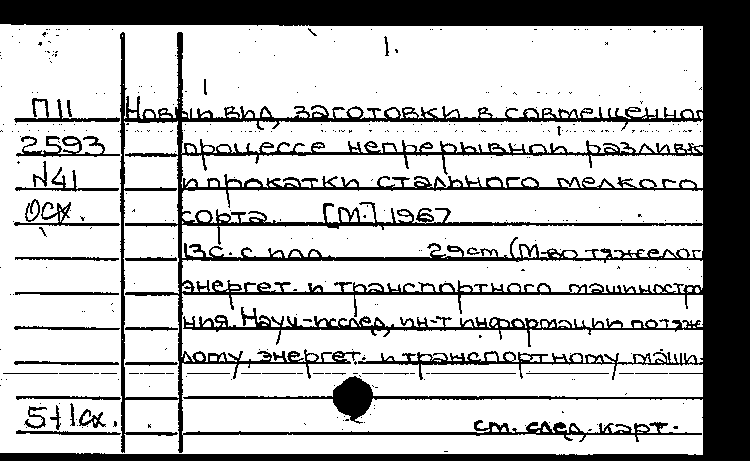 1.
П11 Новый вид заготовки в совмещенног
2593 процессе непрерывной разливк
N41 и прокатки стального мелкого
осх. сорта. [М.], 1967
13с. с илл. 29см. (М-во тяжелог
энергет. и транспортного машиностр
ния. Науч.-исслед. ин-т информации по тяж
лому, энергет. и транспортному маши-
5+1сх.
см. след. карт.